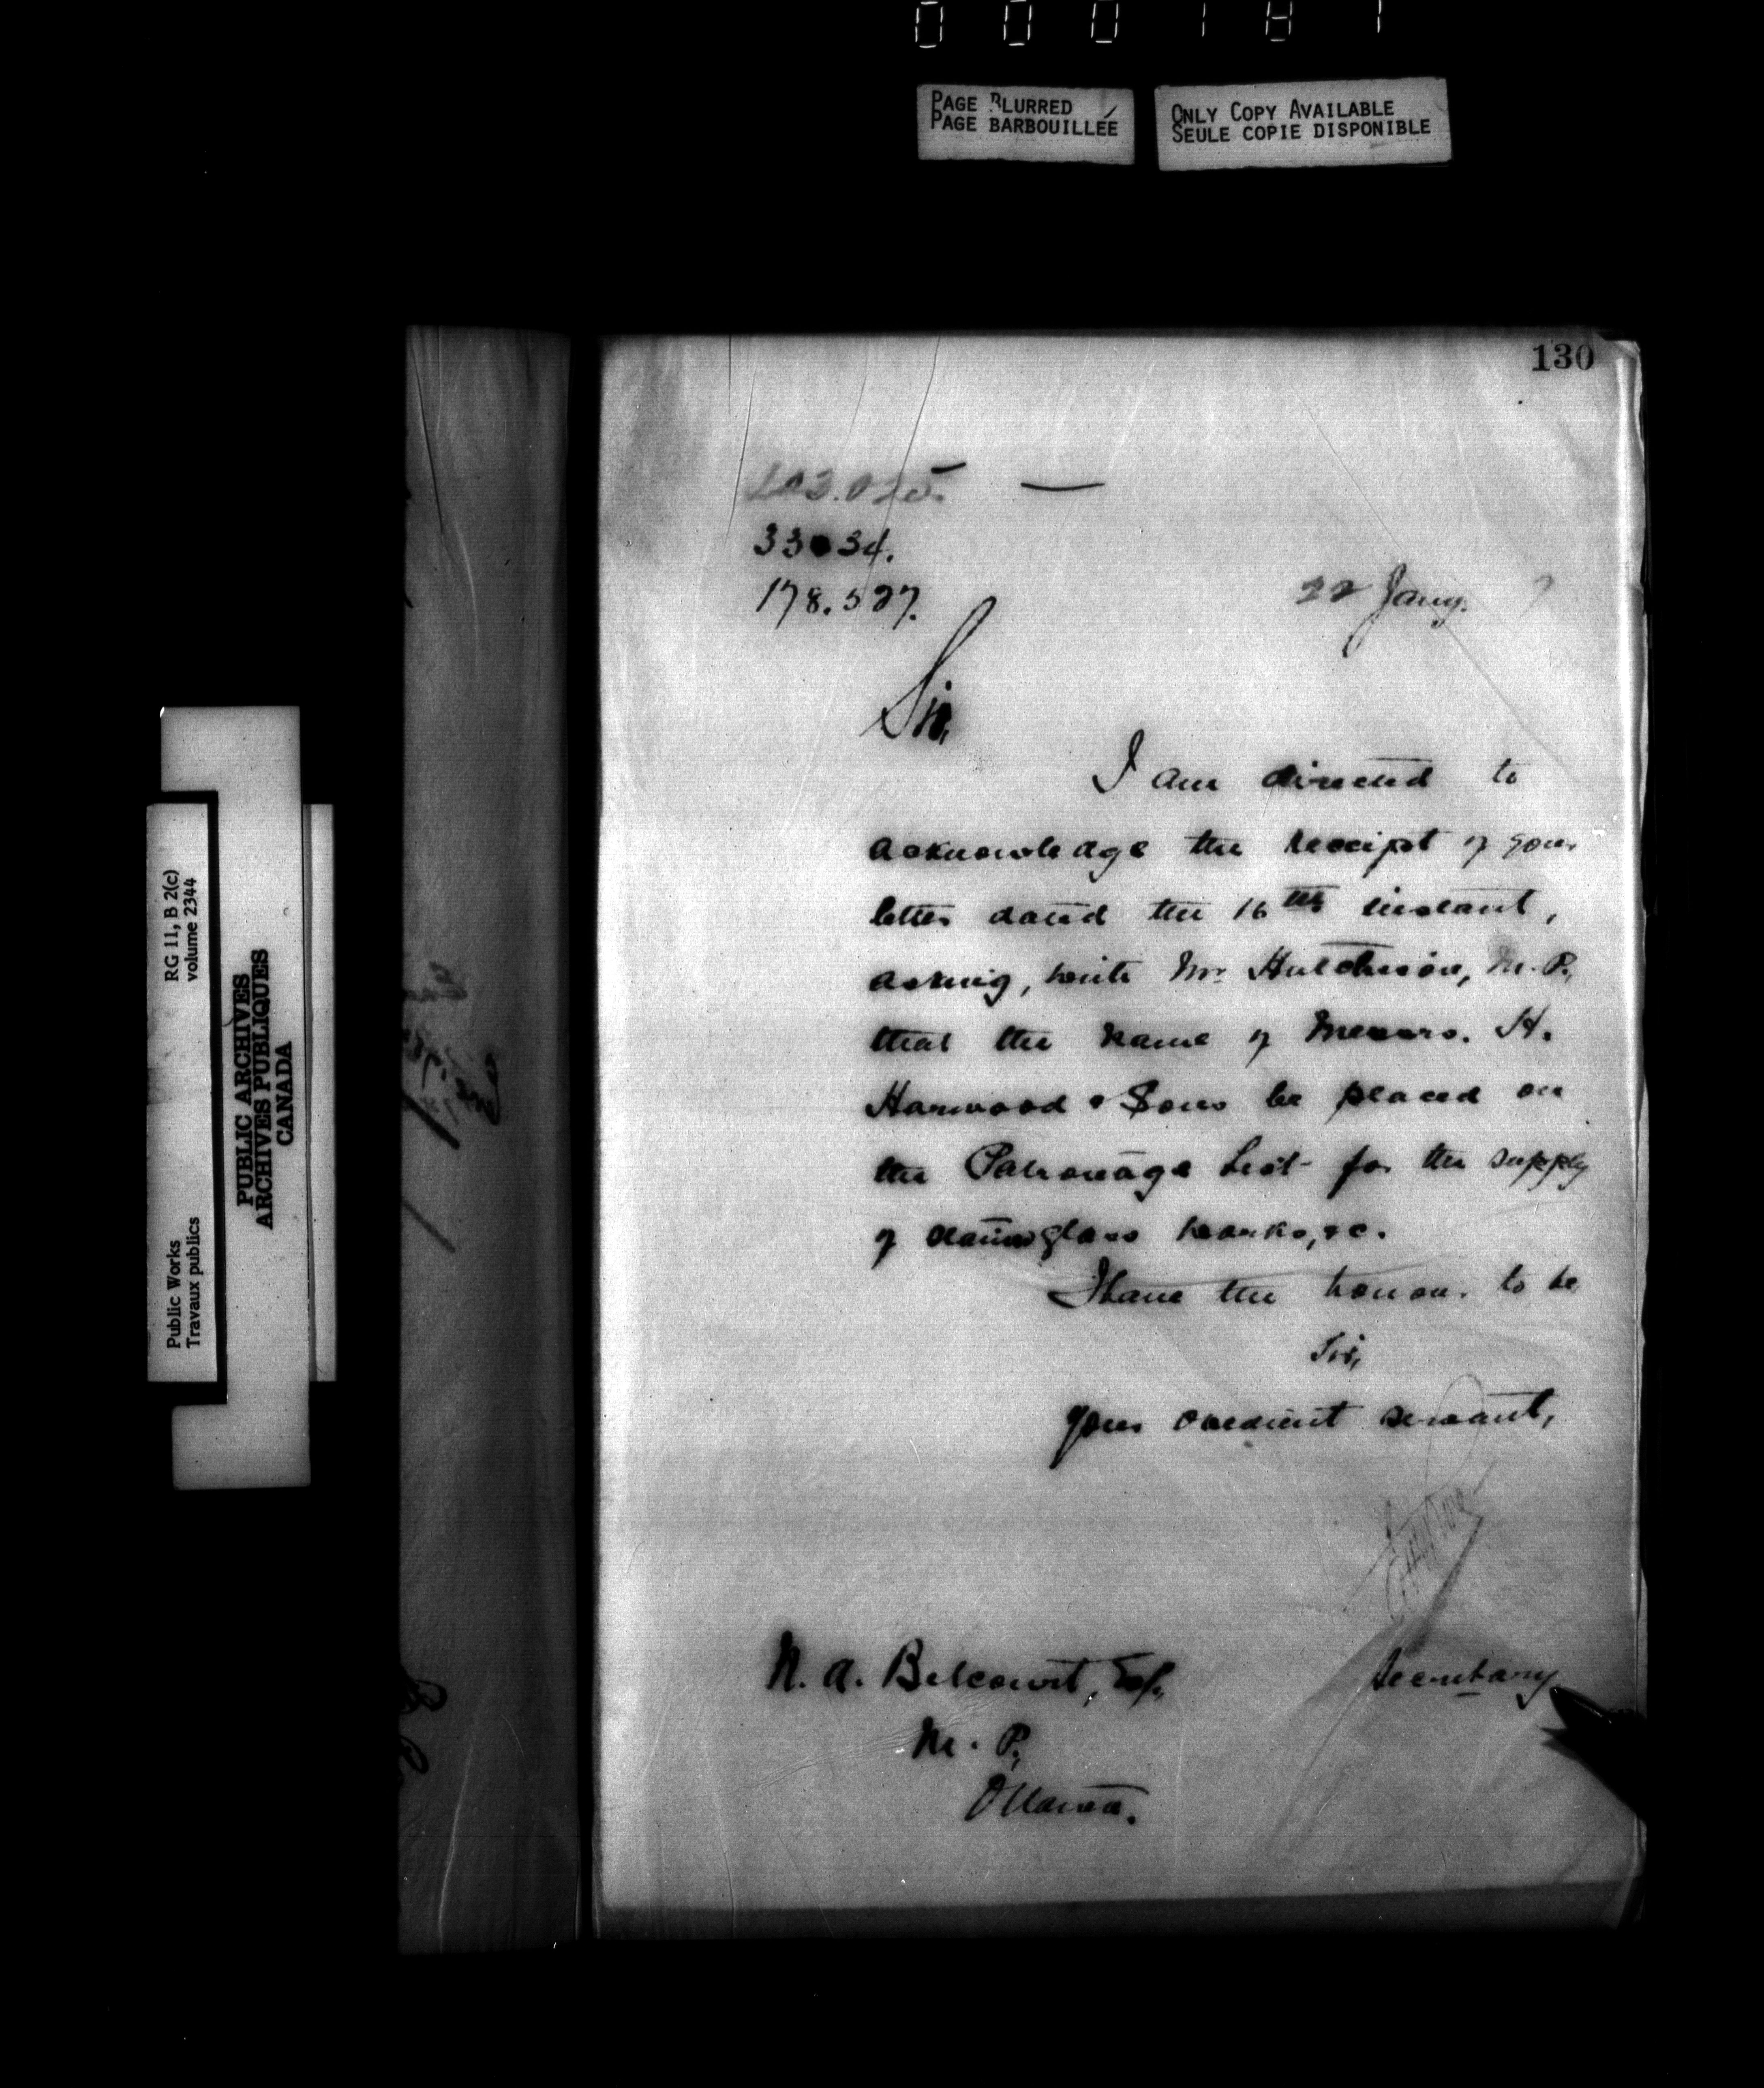 000181
PAGE BLURRED
PAGE BARBOUILLÉE
ONLY COPY AVAILABLE
SEULE COPIE DISPONIBLE
130
33034.
178.527.
22 Jany.
Sir,
I am directed to
acknowledge the receipt of your
letter dated the 16th instant,
asking, with Mr. Hutchison, M.P.,
that the name of Messrs. H.
Harwood & Sons be placed on
the Patronage List for the supply
of stained glass works, &c.
I have the honour to be
Sir,
Your obedient servant,
Secretary
N. A. Belcourt, Esq.,
M. P.,
Ottawa.
Public Works
Travaux publics
RG 11, B 2(c)
volume 2344
PUBLIC ARCHIVES
ARCHIVES PUBLIQUES
CANADA